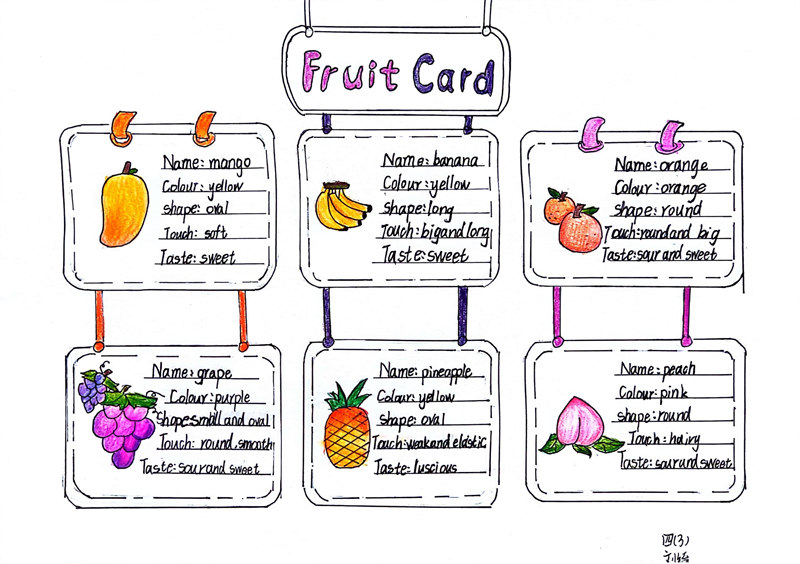 Fruit Card
Name: mango
Colour: yellow
shape: oval
Touch: soft
Taste: sweet
Name: banana
Colour: yellow
Shape: long
Touch: big and long
Taste: sweet
Name: orange
Colour: orange
shape: round
Touch: round and big
Taste: sour and sweet
Name: grape
Colour: purple
Shape: small and oval
Touch: round, smooth
Taste: sour and sweet
Name: pineapple
Colour: yellow
shape: oval
Touch: weak and elastic
Taste: luscious
Name: peach
Colour: pink
shape: round
Touch: hairy
Taste: sour and sweet
四(3)